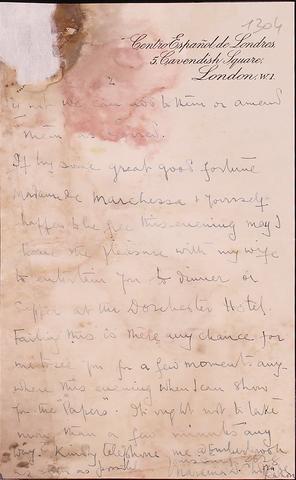 1304
Centro Español de Londres
5, Cavendish Square,
London. W.1.
2
if not we can add to them or amend
them
If by some great good fortune
Madame Marchesa & yourself
happen to be free this evening may I
have the pleasure with my wife
to entertain you to dinner or
supper at the Dorchester Hotel.
Failing this is there any chance for
me to see you for a few moments any-
where this evening when I can show
you the "Papers". It ought not to take
more than a few minutes any
way. Kindly telephone me
as soon as possible